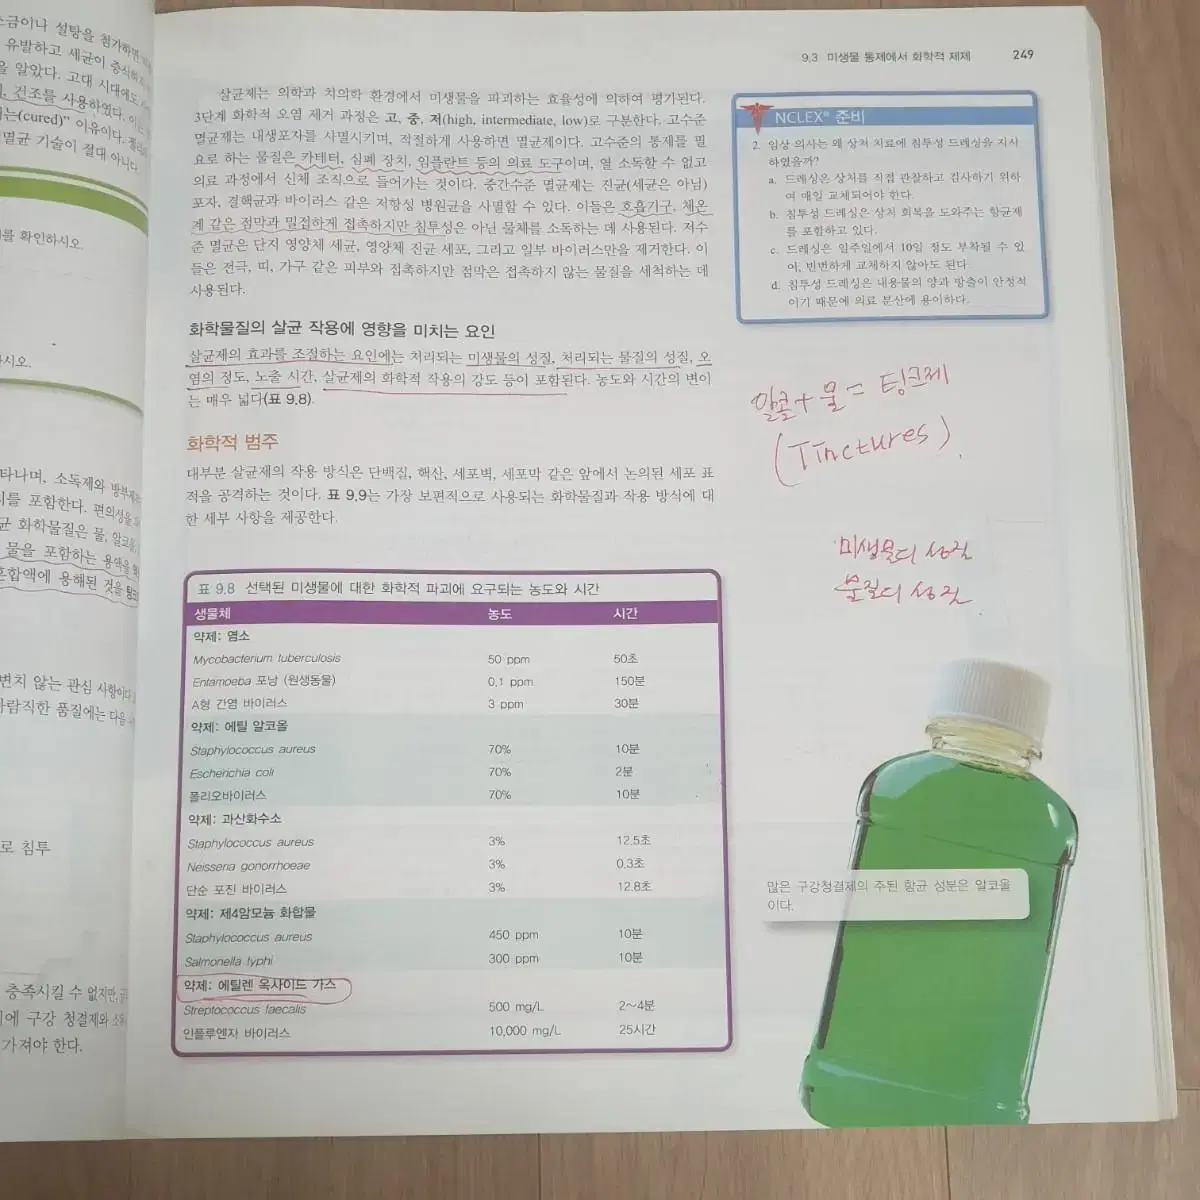 소금이나 설탕을 첨가하면
유발하고 세균이 증식하
을 알았다. 고대 시대에도
건조를 사용하였다.
는(cured)” 이유이다.
멸균 기술이 절대 아니다
를 확인하시오.
시오.
타나며, 소독제와 방부제는
리를 포함한다. 편의성을
균 화학물질은 물, 알코올,
물을 포함하는 용액을
혼합액에 용해된 것을 팅크
변치 않는 관심 사항이다
바람직한 품질에는 다음
로 침투
충족시킬 수 없지만,
에 구강 청결제와
가져야 한다.
9.3 미생물 통제에서 화학적 제제 249
살균제는 의학과 치의학 환경에서 미생물을 파괴하는 효율성에 의하여 평가된다.
3단계 화학적 오염 제거 과정은 고, 중, 저(high, intermediate, low)로 구분한다. 고수준
멸균제는 내생포자를 사멸시키며, 적절하게 사용하면 멸균제이다. 고수준의 통제를 필
요로 하는 물질은 카테터, 심폐 장치, 임플란트 등의 의료 도구이며, 열 소독할 수 없고
의료 과정에서 신체 조직으로 들어가는 것이다. 중간수준 멸균제는 진균(세균은 아님)
포자, 결핵균과 바이러스 같은 저항성 병원균을 사멸할 수 있다. 이들은 호흡기구, 체온
계 같은 점막과 밀접하게 접촉하지만 침투성은 아닌 물체를 소독하는 데 사용된다. 저수
준 멸균은 단지 영양체 세균, 영양체 진균 세포, 그리고 일부 바이러스만을 제거한다. 이
들은 전극, 띠, 가구 같은 피부와 접촉하지만 점막은 접촉하지 않는 물질을 세척하는 데
사용된다.
화학물질의 살균 작용에 영향을 미치는 요인
살균제의 효과를 조절하는 요인에는 처리되는 미생물의 성질, 처리되는 물질의 성질, 오
염의 정도, 노출 시간, 살균제의 화학적 작용의 강도 등이 포함된다. 농도와 시간의 변이
는 매우 넓다(표 9.8).
화학적 범주
대부분 살균제의 작용 방식은 단백질, 핵산, 세포벽, 세포막 같은 앞에서 논의된 세포 표
적을 공격하는 것이다. 표 9.9는 가장 보편적으로 사용되는 화학물질과 작용 방식에 대
한 세부 사항을 제공한다.
NCLEX® 준비
2. 임상 의사는 왜 상처 치료에 침투성 드레싱을 지시
하였을까?
a. 드레싱은 상처를 직접 관찰하고 검사하기 위하
여 매일 교체되어야 한다.
b. 침투성 드레싱은 상처 회복을 도와주는 항균제
를 포함하고 있다.
c. 드레싱은 일주일에서 10일 정도 부착될 수 있
어, 빈번하게 교체하지 않아도 된다.
d. 침투성 드레싱은 내용물의 양과 방출이 안정적
이기 때문에 의료 분산에 용이하다.
알콜 + 물 = 팅크제
(Tinctures).
미생물의 성질
물질의 성질.
표 9.8 선택된 미생물에 대한 화학적 파괴에 요구되는 농도와 시간
생물체 농도 시간
약제: 염소
Mycobacterium tuberculosis 50 ppm 50초
Entamoeba 포낭 (원생동물) 0.1 ppm 150분
A형 간염 바이러스 3 ppm 30분
약제: 에틸 알코올
Staphylococcus aureus 70% 10분
Escherichia coli 70% 2분
폴리오바이러스 70% 10분
약제: 과산화수소
Staphylococcus aureus 3% 12.5초
Neisseria gonorrhoeae 3% 0.3초
단순 포진 바이러스 3% 12.8초
약제: 제4암모늄 화합물
Staphylococcus aureus 450 ppm 10분
Salmonella typhi 300 ppm 10분
약제: 에틸렌 옥사이드 가스
Streptococcus faecalis 500 mg/L 2~4분
인플루엔자 바이러스 10,000 mg/L 25시간
많은 구강청결제의 주된 항균 성분은 알코올
이다.